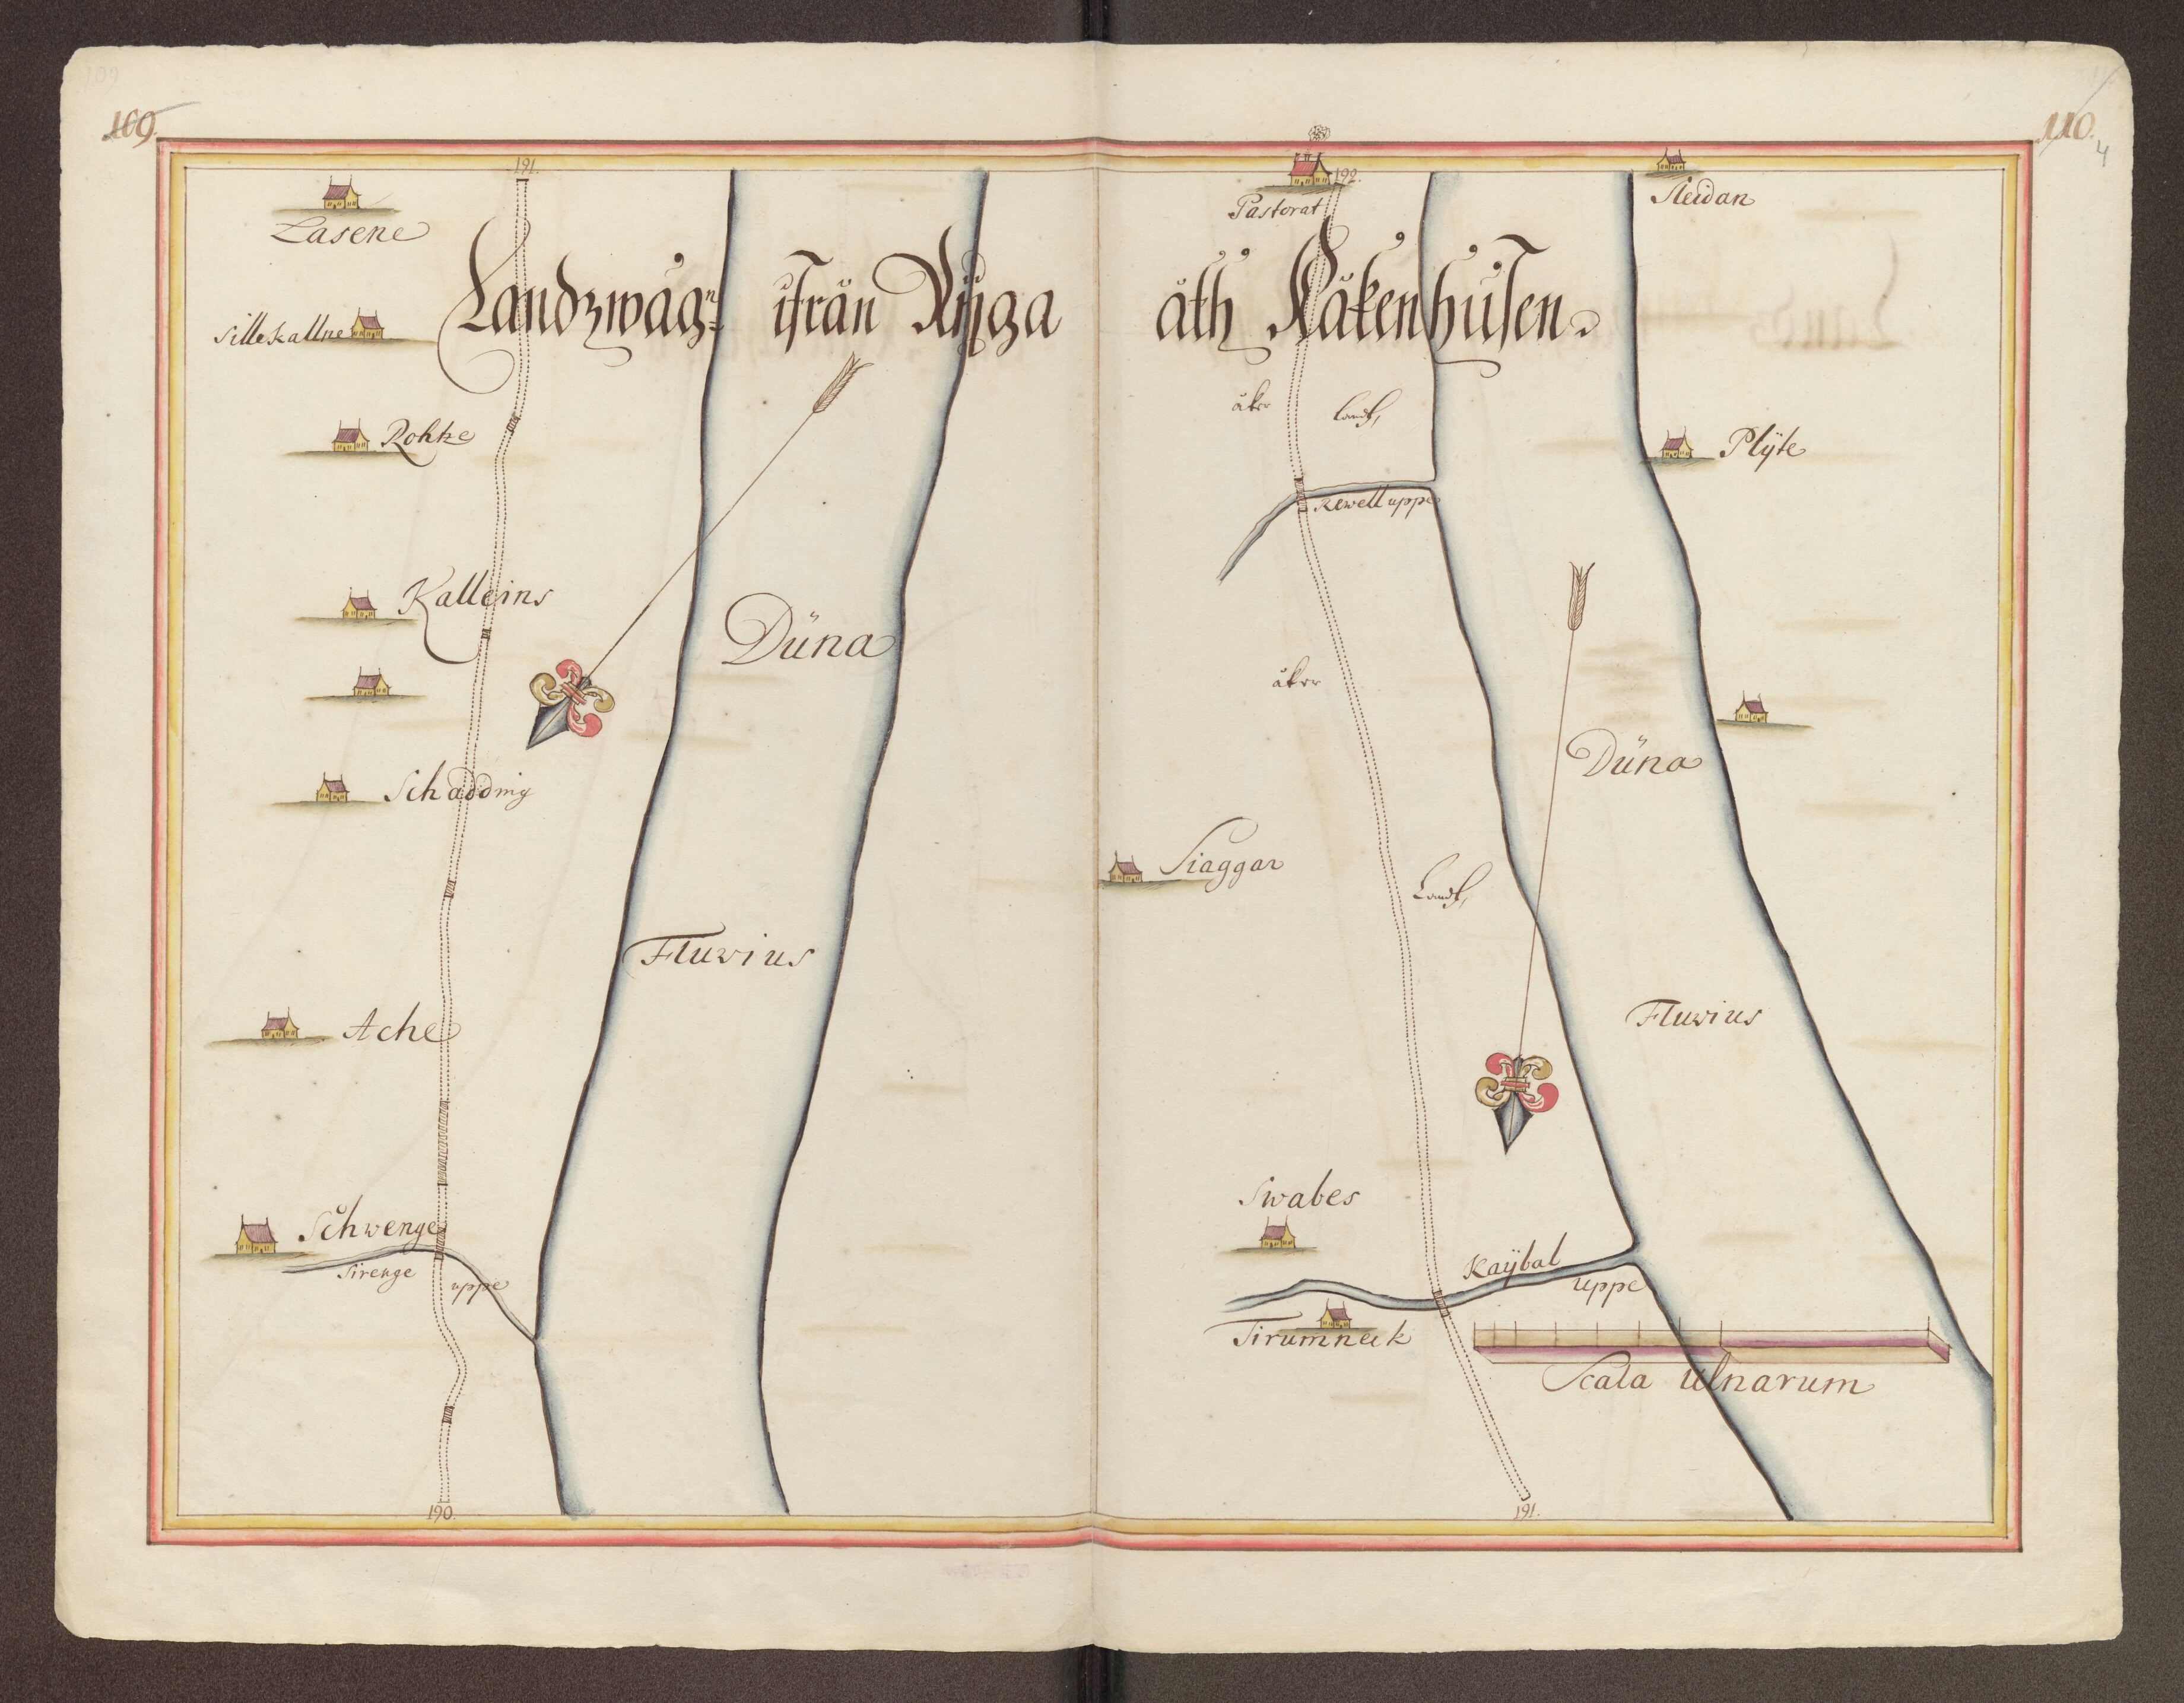 109.
110.
4
Landzwägn ifrån Rijga åth Kåkenhüsen.
191.
Lasene
Sillekallne
Rohke
Kalleins
Schadding
Ache
Schwenge
Sirenge uppe
190.
Düna
Fluvius
192.
Pastorat
Sleidan
åker Landh,
Plÿte
Rewell uppe
åker
Düna
Siaggar
Landh,
Fluvius
Swabes
Kaÿbal uppe
Tirumneek
Scala Ulnarum
191.